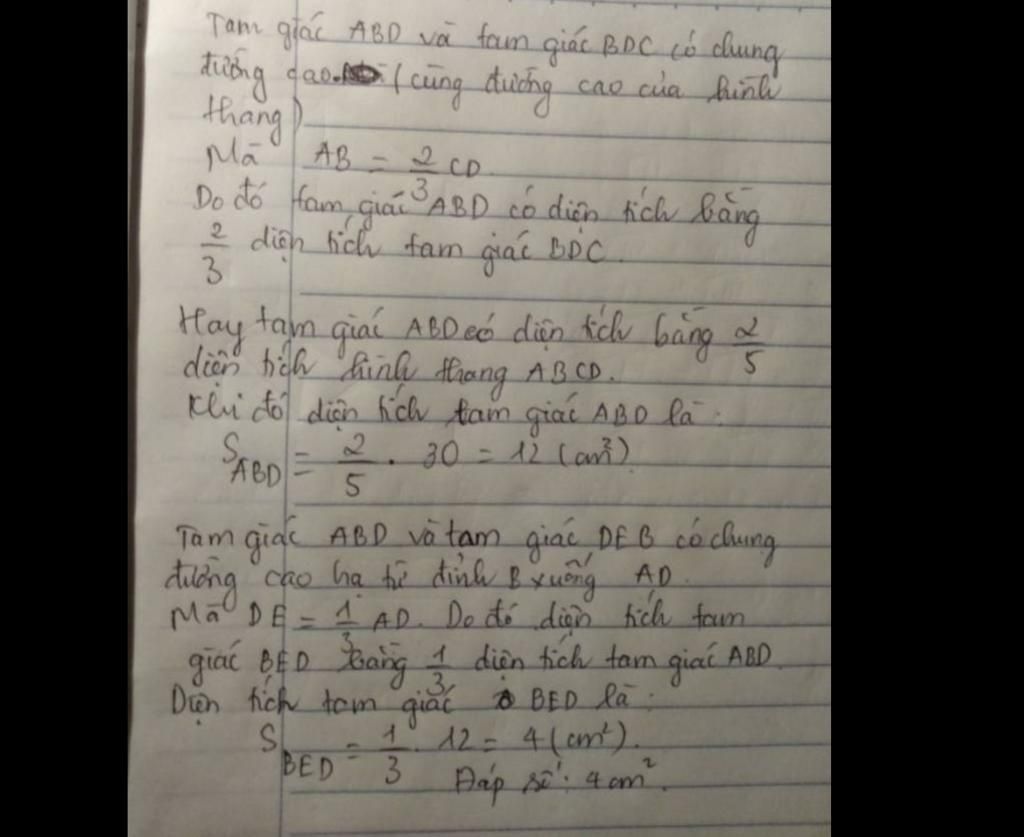 Tam giác ABD và tam giác BDC có chung
đường cao (cùng đường cao của hình
thang)
Mà AB = 2/3 CD.
Do đó tam giác ABD có diện tích bằng
2/3 diện tích tam giác BDC.
Hay tam giác ABD có diện tích bằng 2/5
diện tích hình thang ABCD.
Khi đó diện tích tam giác ABD là:
S_ABD = 2/5 . 30 = 12 (cm²)
Tam giác ABD và tam giác DEB có chung
đường cao hạ từ đỉnh B xuống AD.
Mà DE = 1/3 AD. Do đó diện tích tam
giác BED bằng 1/3 diện tích tam giác ABD.
Diện tích tam giác BED là:
S_BED = 1/3 . 12 = 4 (cm²).
Đáp số: 4cm².